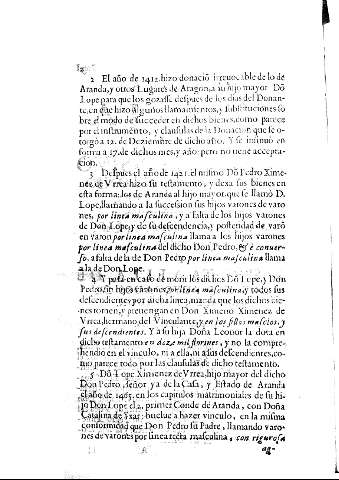 2 El año de 1412. hizo donaciõ irreuocable de lo de
Aranda, y otros Lugares de Aragon, a su hijo mayor Dõ
Lope para que los gozasse despues de los dias del Donan-
te, en que hizo algunos llamamientos, y substituciones so
bre el modo de succeder en dichos bienes, como parece
por el instrumento, y clausulas de la Donacion que le o-
torgò a 12. de Deziembre de dicho año. Y se intimò en
forma a 17. de dicho mes, y año; pero no tiene accepta-
cion.
3 Despues el año de 1421. el mismo Dõ Pedro Xime
nez de Vrrea hizo su testamento, y dexa sus bienes en
esta forma: los de Aranda al hijo mayor que se llamò D.
Lope, llamando a la succession sus hijos varones de varo
nes, por linea masculina, y a falta de los hijos varones
de Don Lope, y de su descendencia, y posteridad de varõ
en varon por linea masculina llama a los hijos varones
por linea masculina del dicho Don Pedro, & è conuer-
so, a falta de la de Don Pedro por linea masculina llama
a la de Don Lope.
4 Y para en caso de morir los dichos Dõ Lope, y Don
Pedro, sin hijos varones por linea masculina, y todos sus
descendientes por dicha linea, manda que los dichos bie-
nes tornen, y preuengan en Don Ximeno Ximenez de
Vrrea, hermano del Vinculante, y en los fijos masclos, y
sus descendientes. Y a su hija Doña Leonor la dota en
dicho testamento en doze mil florines, y no la compre-
hendio en el vinculo, ni a ella, ni a sus descendientes, co-
mo parece todo por las clausulas de dicho testamento.
5 Dõ Lope Ximenez de Vrrea, hijo mayor del dicho
Don Pedro, señor ya de la Casa, y Estado de Aranda
el año de 1465. en los capitulos matrimoniales de su hi
jo Don Lope el 2. primer Conde de Aranda, con Doña
Catalina de Yxar: buelue a hazer vinculo, en la misma
conformidad que Don Pedro su Padre, llamando varo-
nes de varones por linea recta masculina, con rigurosa
ag-